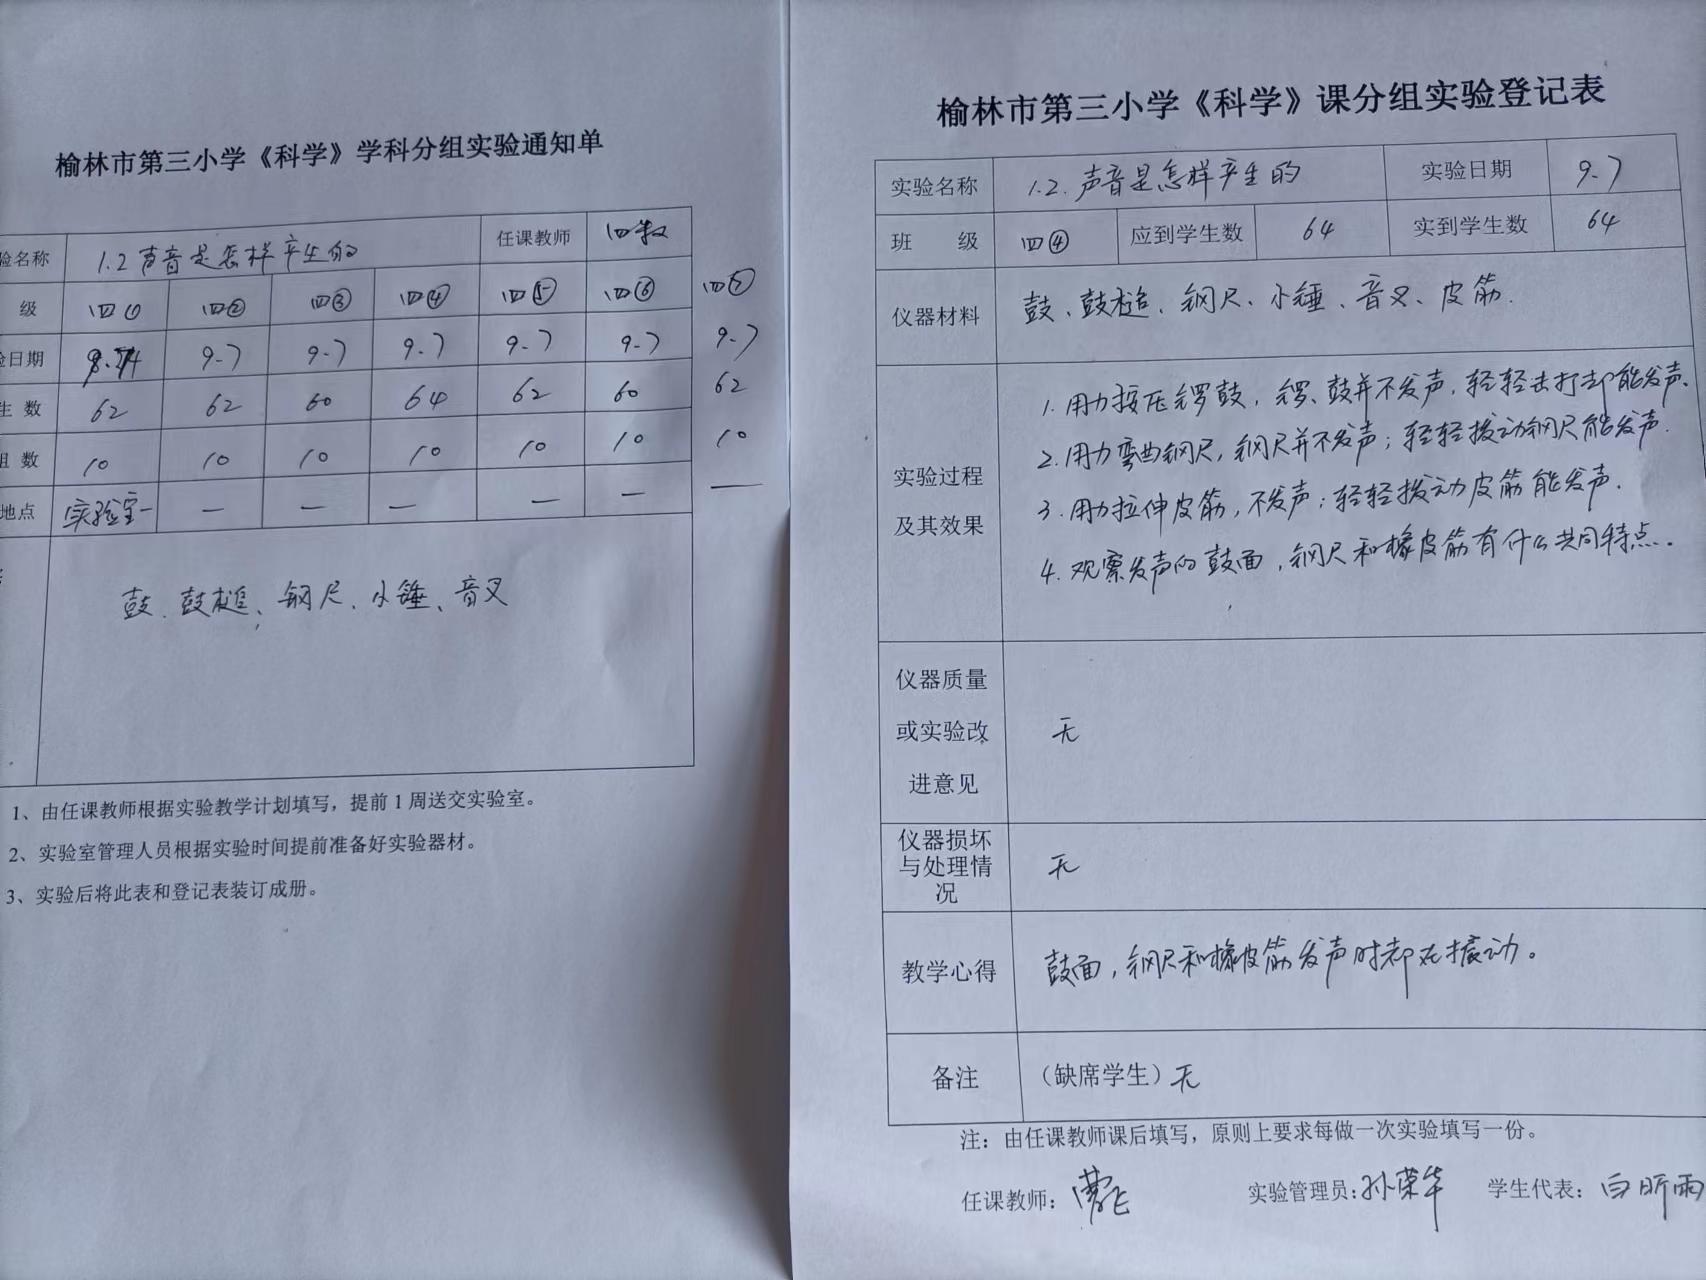 榆林市第三小学《科学》学科分组实验通知单
验名称 1.2 声音是怎样产生的 任课教师 四教
级 四① 四② 四③ 四④ 四⑤ 四⑥ 四⑦
验日期 9.7 9.7 9.7 9.7 9.7 9.7
生数 62 62 60 64 62 60 62
组数 10 10 10 10 10 10 10
地点 实验室一 — — — — — —
鼓、鼓槌、钢尺、小锤、音叉
1、由任课教师根据实验教学计划填写，提前1周送交实验室。
2、实验室管理人员根据实验时间提前准备好实验器材。
3、实验后将此表和登记表装订成册。
榆林市第三小学《科学》课分组实验登记表
实验名称 1.2. 声音是怎样产生的 实验日期 9.7
班 级 四④ 应到学生数 64 实到学生数 64
仪器材料 鼓、鼓槌、钢尺、小锤、音叉、皮筋.
实验过程
及其效果
1. 用力按压锣鼓，锣、鼓并不发声，轻轻击打却能发声.
2. 用力弯曲钢尺，钢尺并不发声；轻轻拨动钢尺能发声.
3. 用力拉伸皮筋，不发声；轻轻拨动皮筋能发声.
4. 观察发声的鼓面，钢尺和橡皮筋有什么共同特点.
仪器质量
或实验改
进意见
无
仪器损坏
与处理情
况
无
教学心得 鼓面，钢尺和橡皮筋发声时都在振动。
备注 （缺席学生）无
注：由任课教师课后填写，原则上要求每做一次实验填写一份。
任课教师： 实验管理员：孙荣华 学生代表：白昕雨